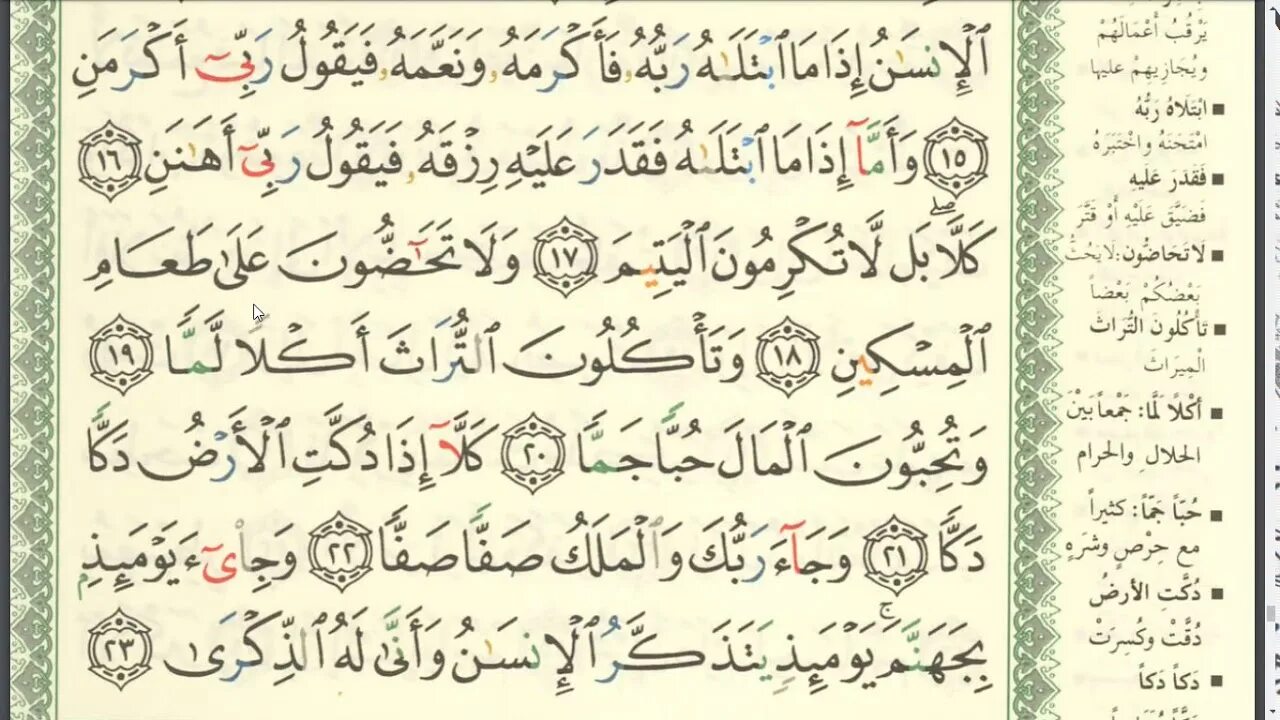 ٱلۡإِنسَٰنُ إِذَا مَا ٱبۡتَلَىٰهُ رَبُّهُۥ فَأَكۡرَمَهُۥ وَنَعَّمَهُۥ فَيَقُولُ رَبِّيٓ أَكۡرَمَنِ
١٥ وَأَمَّآ إِذَا مَا ٱبۡتَلَىٰهُ فَقَدَرَ عَلَيۡهِ رِزۡقَهُۥ فَيَقُولُ رَبِّيٓ أَهَٰنَنِ ١٦
كَلَّاۖ بَل لَّا تُكۡرِمُونَ ٱلۡيَتِيمَ ١٧ وَلَا تَحَٰٓضُّونَ عَلَىٰ طَعَامِ
ٱلۡمِسۡكِينِ ١٨ وَتَأۡكُلُونَ ٱلتُّرَاثَ أَكۡلٗا لَّمّٗا ١٩
وَتُحِبُّونَ ٱلۡمَالَ حُبّٗا جَمّٗا ٢٠ كَلَّآ إِذَا دُكَّتِ ٱلۡأَرۡضُ دَكّٗا
دَكّٗا ٢١ وَجَآءَ رَبُّكَ وَٱلۡمَلَكُ صَفّٗا صَفّٗا ٢٢ وَجِاْيٓءَ يَوۡمَئِذِۭ
بِجَهَنَّمَۚ يَوۡمَئِذٖ يَتَذَكَّرُ ٱلۡإِنسَٰنُ وَأَنَّىٰ لَهُ ٱلذِّكۡرَىٰ ٢٣
يَرْقُبُ أَعْمَالَهُمْ
ويُجَازِيهِمْ عليها
■ ابْتَلَاهُ رَبُّهُ
امْتَحَنَهُ واخْتَبَرَهُ
■ فَقَدَرَ عَلَيهِ
فَضَيَّقَ عَلَيْهِ أَوْ قَتَّرَ
■ لَا تَحَاضُّون: لَا يَحُثُّ
بَعْضُكُمْ بَعْضاً
■ تَأْكُلُونَ التُّرَاثَ
الْمِيرَاثَ
■ أَكْلًا لَمًّا: جَمْعاً بَيْنَ
الحَلَالِ والحَرَامِ
■ حُبّاً جَمّاً: كَثيراً
مع حِرْصٍ وشَرَهٍ
■ دُكَّتِ الأَرضُ
دُقَّتْ وكُسِرَتْ
■ دَكاً دَكاً